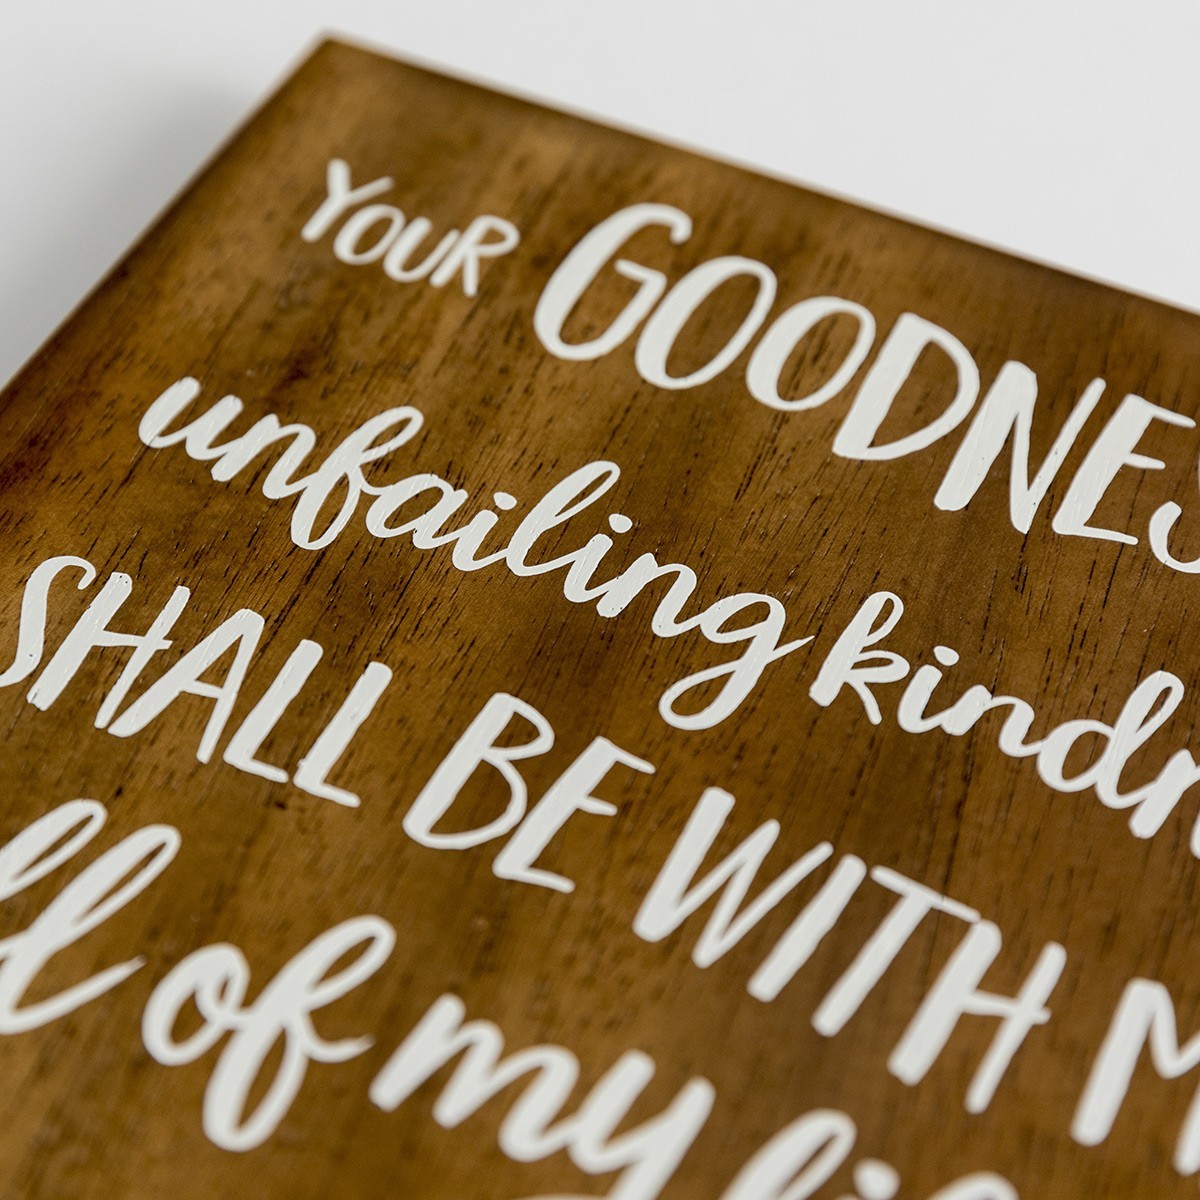 YOUR GOODNES
unfailing kindn
SHALL BE WITH M
ll of my li